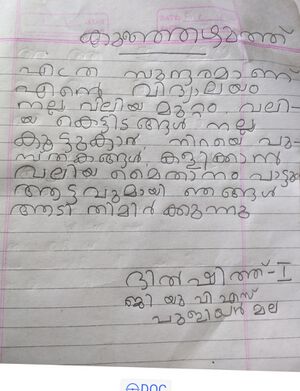 കുഞ്ഞെഴുത്ത്
എത്ര സുന്ദരമാണ്
എന്റെ വിദ്യാലയം
നല്ല വലിയ മുറ്റം. വലി
യ കെട്ടിടങ്ങൾ നല്ല
കൂട്ടുകാർ, നിറയെ പു
സ്തകങ്ങൾ, കളിക്കാൻ
വലിയ മൈതാനം പാട്ടും
ആട്ടവുമായി ഞങ്ങൾ
ആടി തിമിർക്കുന്നു
ദീത ഷിത്ത്-I
ജി യു പി എസ്
മല
DOC